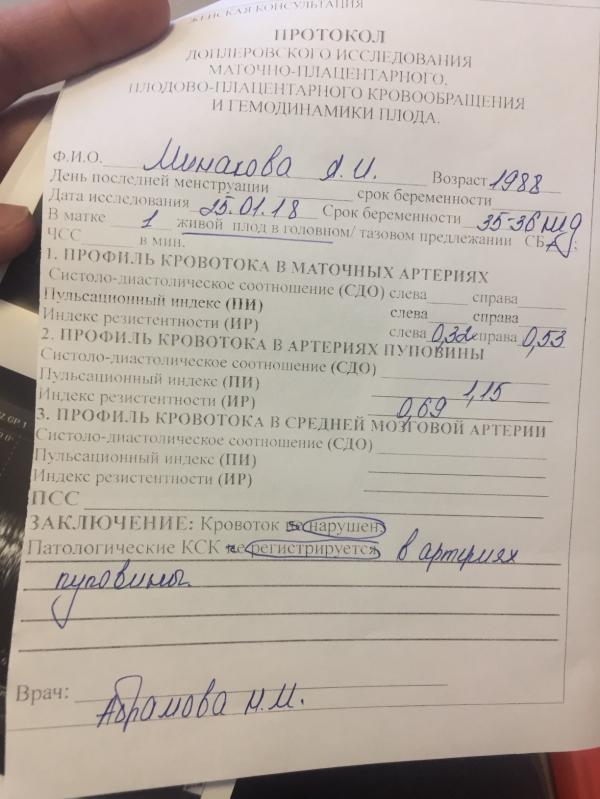 ЖЕНСКАЯ КОНСУЛЬТАЦИЯ
ПРОТОКОЛ
ДОПЛЕРОВСКОГО ИССЛЕДОВАНИЯ
МАТОЧНО-ПЛАЦЕНТАРНОГО,
ПЛОДОВО-ПЛАЦЕНТАРНОГО КРОВООБРАЩЕНИЯ
И ГЕМОДИНАМИКИ ПЛОДА.
Ф.И.О. Минакова А.И. Возраст 1988
День последней менструации срок беременности
Дата исследования 25.01.18 Срок беременности 35-36 нед
В матке 1 живой плод в головном/ тазовом предлежании СБ ;
ЧСС в мин.
1. ПРОФИЛЬ КРОВОТОКА В МАТОЧНЫХ АРТЕРИЯХ
Систоло-диастолическое соотношение (СДО) слева справа
Пульсационный индекс (ПИ) слева справа
Индекс резистентности (ИР) слева 0,32 справа 0,53
2. ПРОФИЛЬ КРОВОТОКА В АРТЕРИЯХ ПУПОВИНЫ
Систоло-диастолическое соотношение (СДО)
Пульсационный индекс (ПИ) 1,15
Индекс резистентности (ИР) 0,69
3. ПРОФИЛЬ КРОВОТОКА В СРЕДНЕЙ МОЗГОВОЙ АРТЕРИИ
Систоло-диастолическое соотношение (СДО)
Пульсационный индекс (ПИ)
Индекс резистентности (ИР)
ПСС
ЗАКЛЮЧЕНИЕ: Кровоток не нарушен.
Патологические КСК не регистрируется в артериях
пуповины.
Врач: Абрамова Н.И.